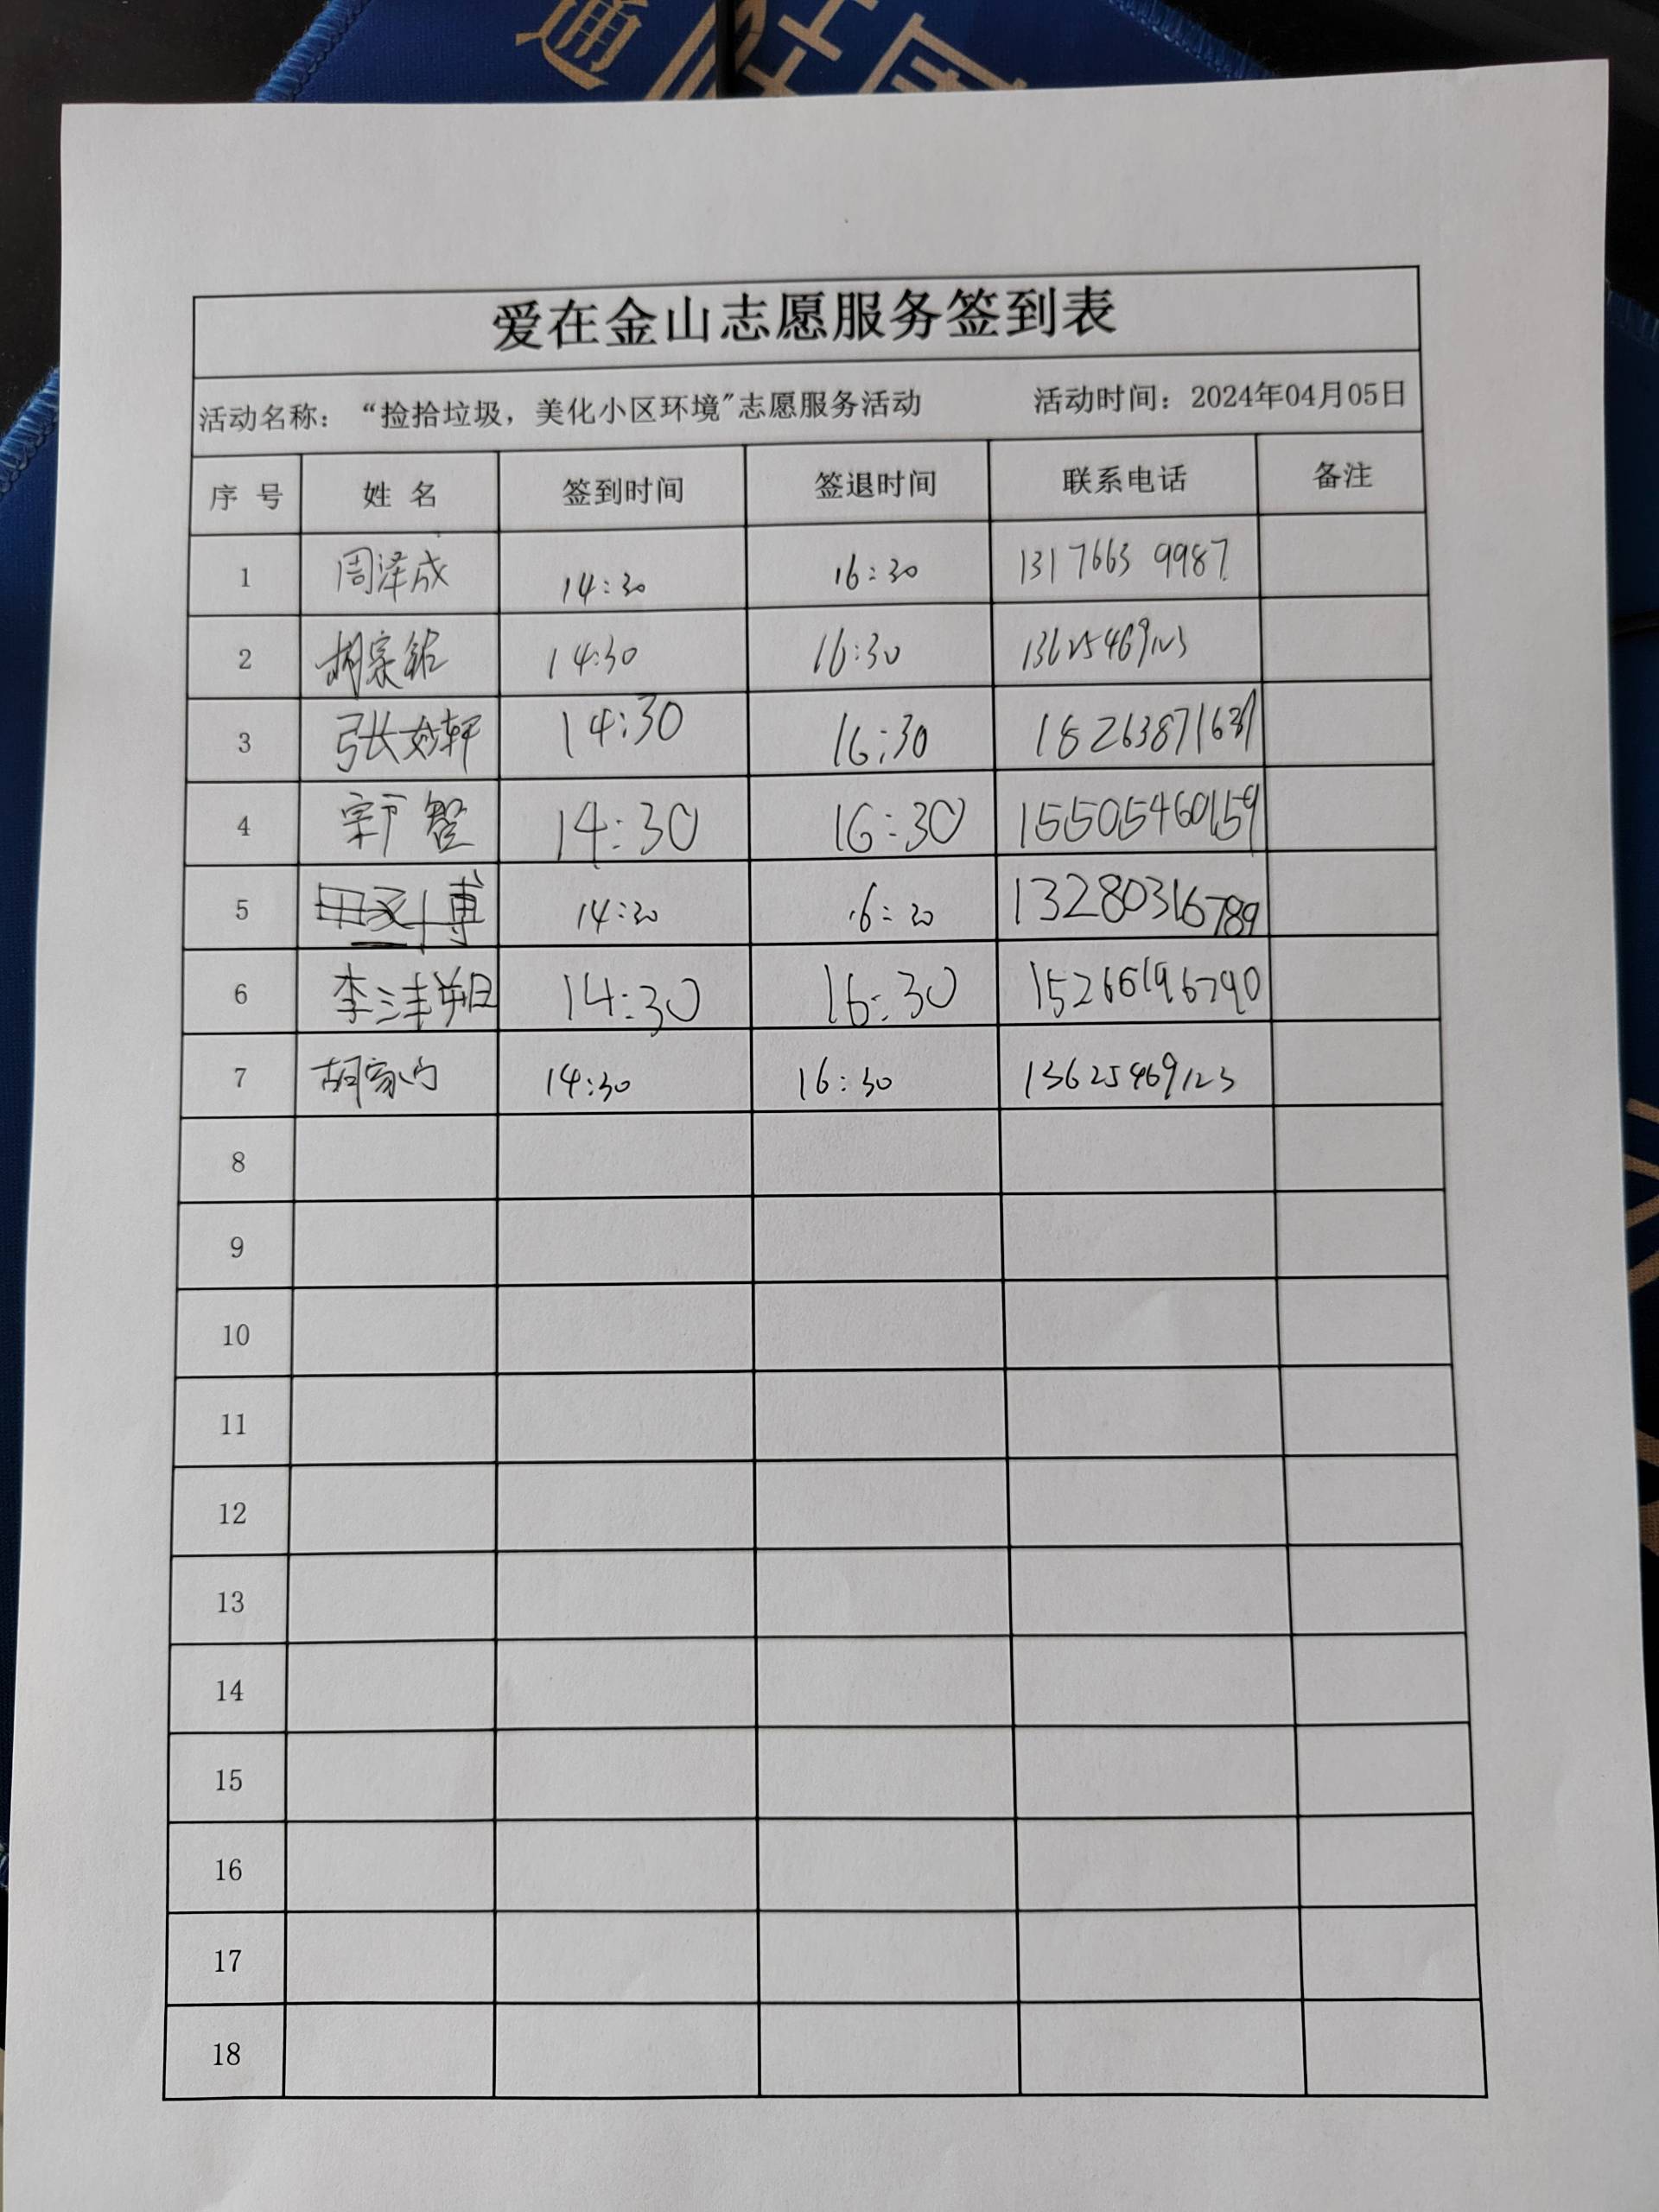 通
爱在金山志愿服务签到表
活动名称：“捡拾垃圾，美化小区环境”志愿服务活动 活动时间：2024年04月05日
序 号 姓 名 签到时间 签退时间 联系电话 备注
1 周泽成 14:30 16:30 13176639987
2 14:30 16:30 13625469123
3 张妙轩 14:30 16:30
4 14:30 16:30 15505460159
5 14:30 16:30 13280316789
6 李沣翔 14:30 16:30 15266196790
7 14:30 16:30 13625469123
8
9
10
11
12
13
14
15
16
17
18